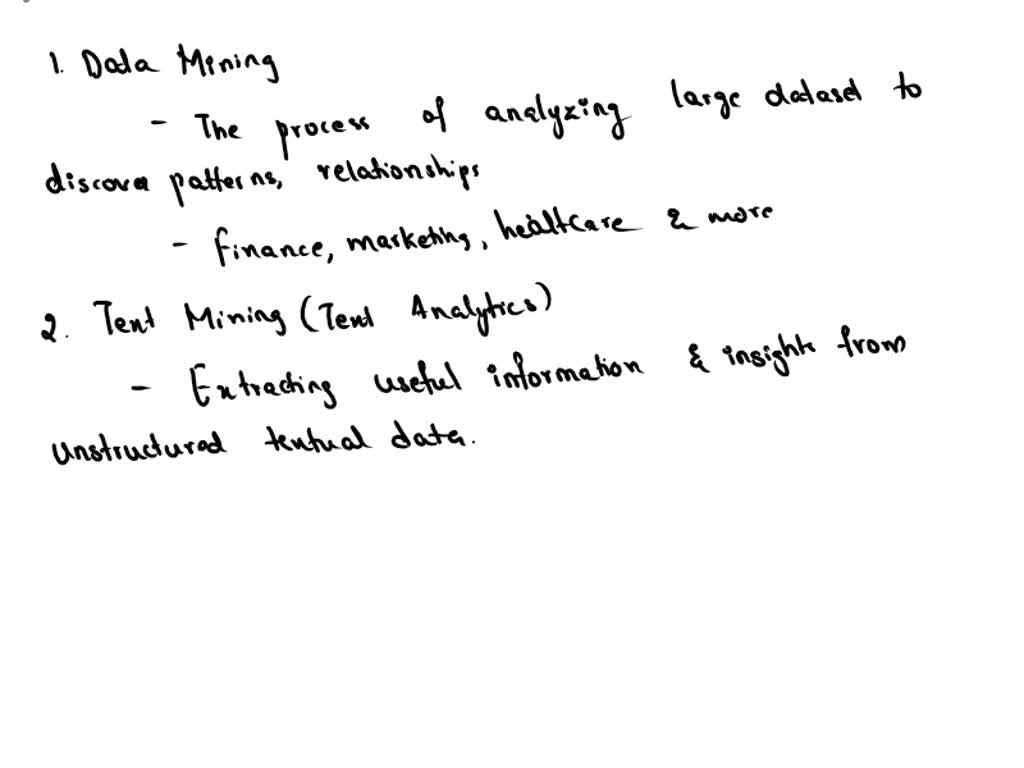 1. Data Mining
- The process of analyzing large dataset to
discover patterns, relationships
- finance, marketing, healtcare & more
2. Text Mining (Text Analytics)
- Extracting useful information & insights from
unstructured textual data.